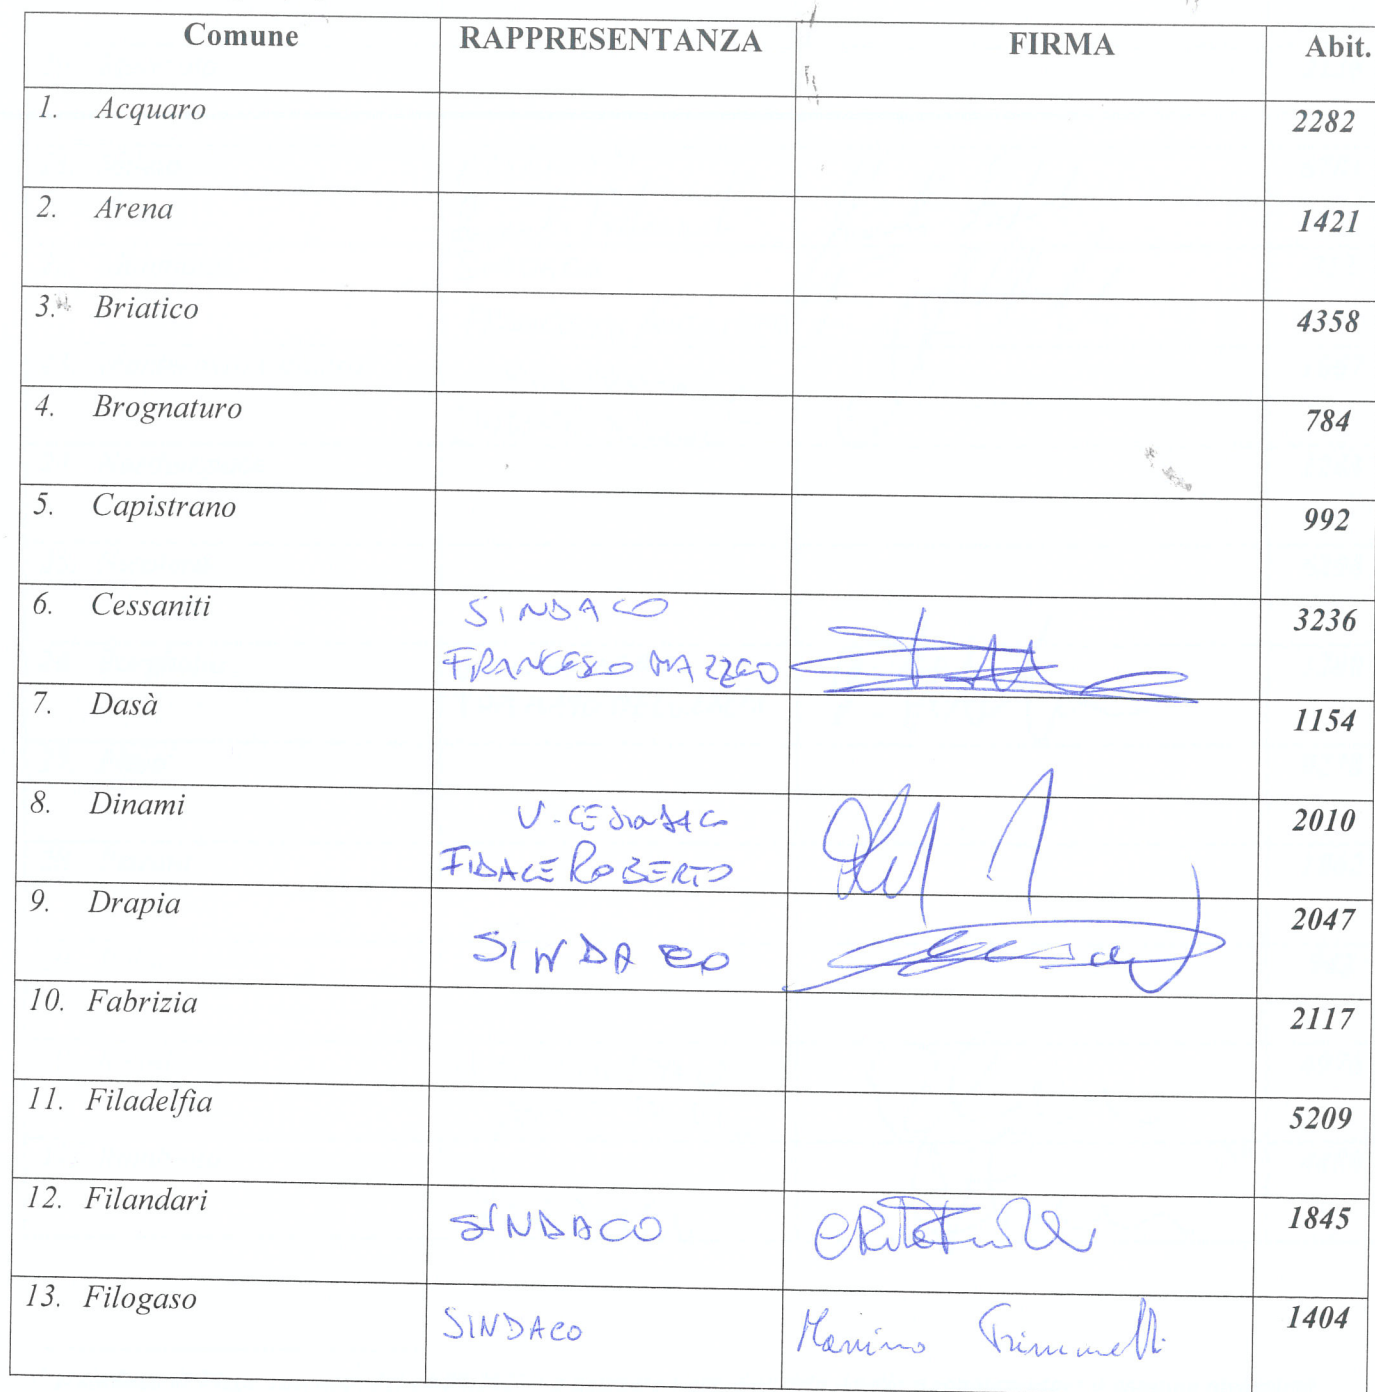 Comune RAPPRESENTANZA FIRMA Abit.
1. Acquaro 2282
2. Arena 1421
3. Briatico 4358
4. Brognaturo 784
5. Capistrano 992
6. Cessaniti SINDACO 3236
FRANCESCO MAZZEO
7. Dasà 1154
8. Dinami 2010
FIDACE ROBERTO
9. Drapia SINDACO 2047
10. Fabrizia 2117
11. Filadelfia 5209
12. Filandari SINDACO 1845
13. Filogaso SINDACO 1404